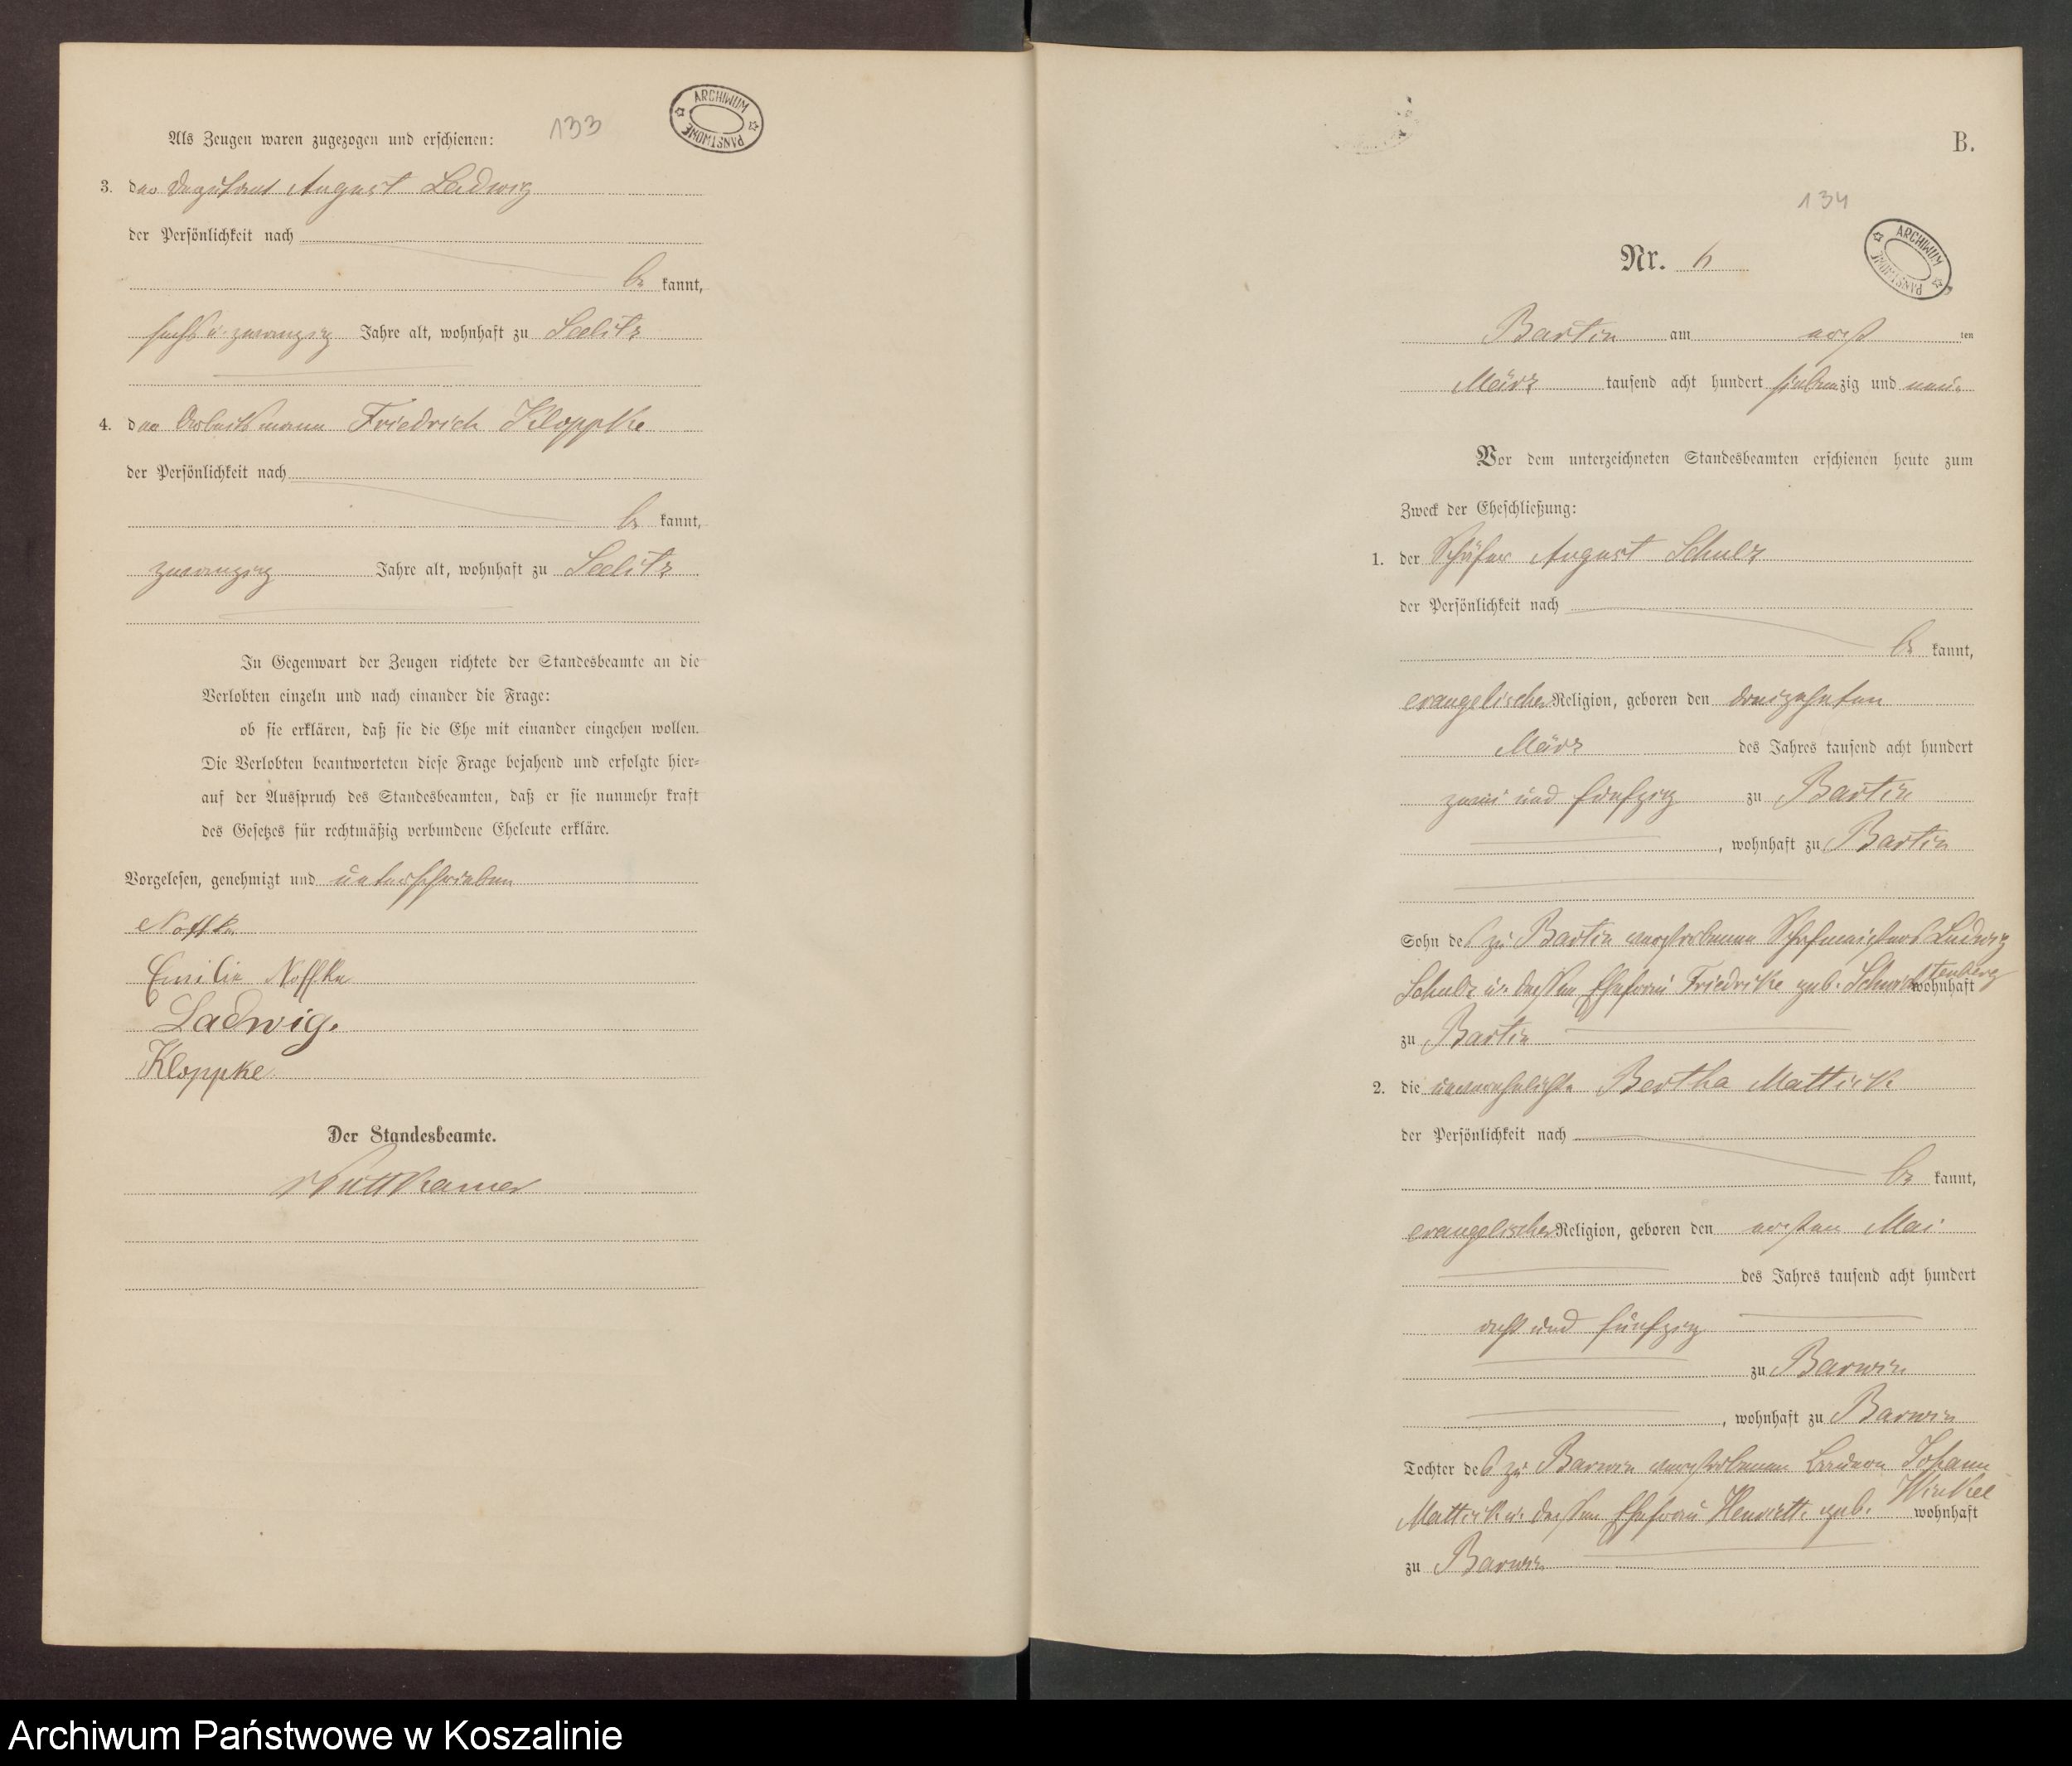 133
ARCHIWUM PAŃSTWOWE
Als Zeugen waren zugezogen und erschienen:
3. der Deputant August Ladwig
der Persönlichkeit nach
be kannt,
sechs u. zwanzig Jahre alt, wohnhaft zu Seelitz
4. der Arbeitsmann Friedrich Kloppke
der Persönlichkeit nach
be kannt,
zwanzig Jahre alt, wohnhaft zu Seelitz
In Gegenwart der Zeugen richtete der Standesbeamte an die
Verlobten einzeln und nach einander die Frage:
ob sie erklären, daß sie die Ehe mit einander eingehen wollen.
Die Verlobten beantworteten diese Frage bejahend und erfolgte hier-
auf der Ausspruch des Standesbeamten, daß er sie nunmehr kraft
des Gesetzes für rechtmäßig verbundene Eheleute erkläre.
Vorgelesen, genehmigt und unterschrieben
Noffke
Emilie Noffke
Ladwig.
Kloppke
Der Standesbeamte.
Puttkamer
B.
134
ARCHIWUM PAŃSTWOWE
Nr. 6
Bartin am erst ten
März tausend acht hundert siebenzig und neun
Vor dem unterzeichneten Standesbeamten erschienen heute zum
Zweck der Eheschließung:
1. der Schäfer August Schulz
der Persönlichkeit nach
be kannt,
evangelischer Religion, geboren den dreizehnten
März des Jahres tausend acht hundert
zwei und fünfzig zu Bartin
, wohnhaft zu Bartin
Sohn des zu Bartin verstorbenen Schafmeisters Ludwig
Schulz u. dessen Ehefrau Friedrike geb. Schwichtenberg wohnhaft
zu Bartin
2. die unverehelichte Bertha Mattick
der Persönlichkeit nach
be kannt,
evangelischer Religion, geboren den ersten Mai
des Jahres tausend acht hundert
acht und fünfzig
zu Barwin
, wohnhaft zu Barwin
Tochter des zu Barwin verstorbenen Johann
Mattick u. dessen Ehefrau Henriette geb. Winkel wohnhaft
zu Barwin
Archiwum Państwowe w Koszalinie